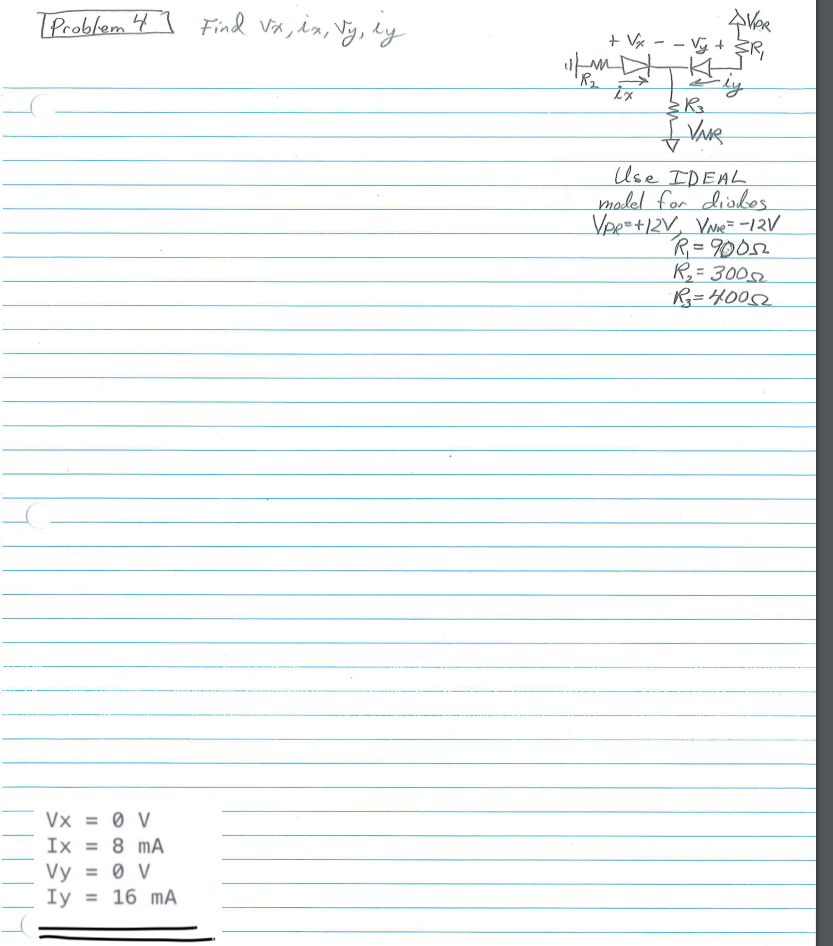 Problem 4 Find Vx, ix, Vy, iy
VPR
+ Vx - - Vy + R1
R2 ix iy
R3
VNR
Use IDEAL
model for diodes
VPR=+12V, VNR=-12V
R1=900Ω
R2=300Ω
R3=400Ω
Vx = 0 V
Ix = 8 mA
Vy = 0 V
Iy = 16 mA